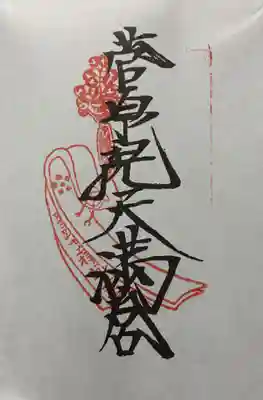 菅原院天満宮